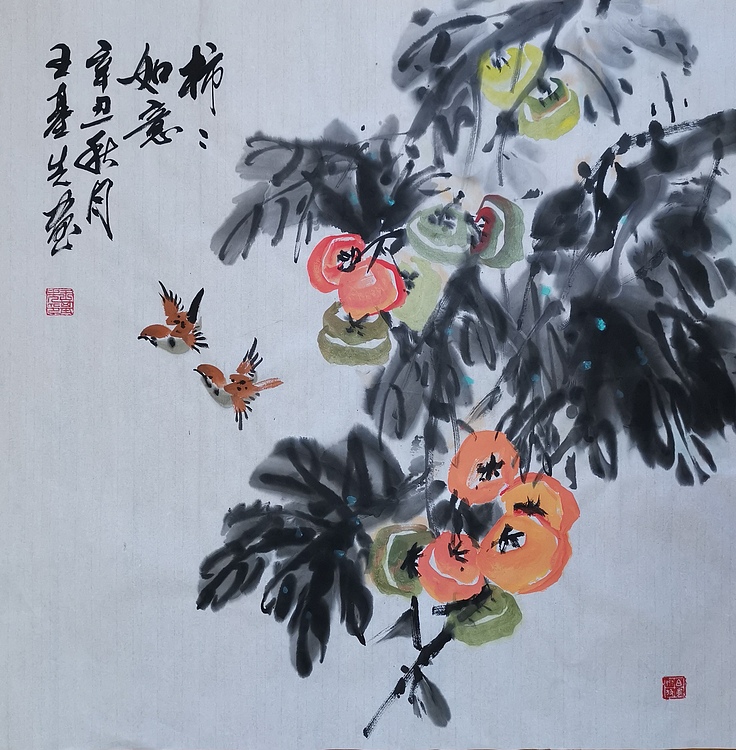 柿柿
如意
辛丑秋月
王基先画